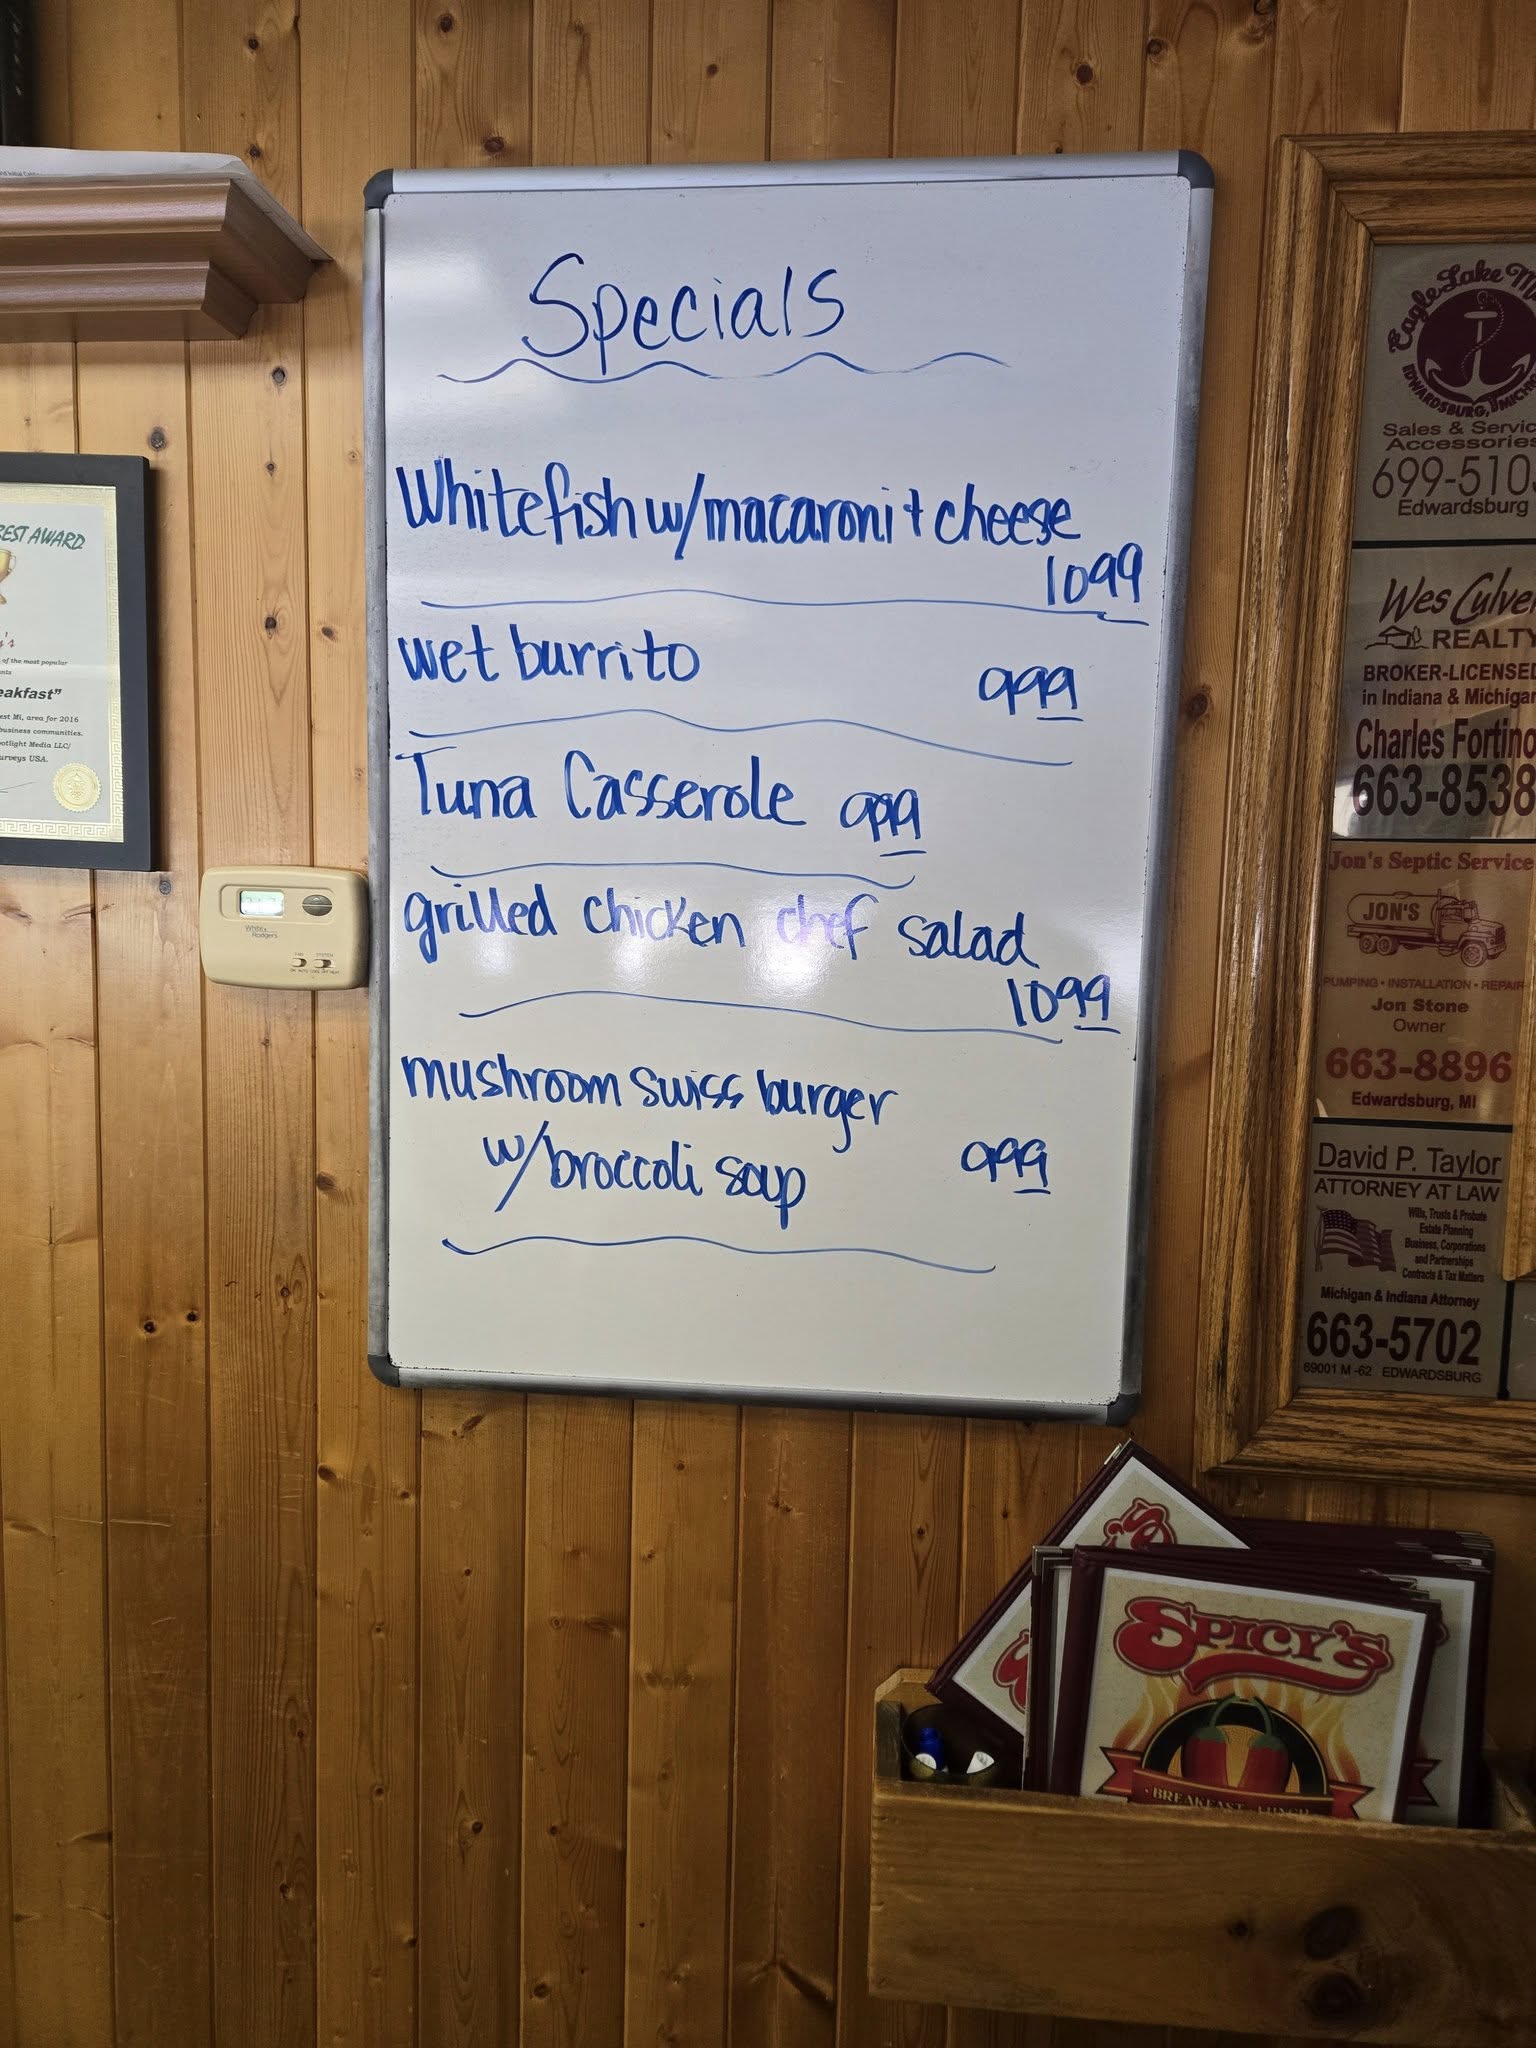 Specials
Whitefish w/macaroni + cheese
1099
wet burrito 999
Tuna Casserole 999
grilled chicken chef salad
1099
mushroom swiss burger
w/broccoli soup 999
BEST AWARD
of the most popular
est Mi, area for 2016
business communities.
potlight Media LLC/
urveys USA.
White
Rodgers
FAN SYSTEM
ON AUTO COOL OFF HEAT
Eagle Lake
EDWARDSBURG, MICH
Sales & Servic
Accessories
699-510
Edwardsburg
Wes Culve
REALTY
BROKER-LICENSED
in Indiana & Michigan
Charles Fortino
663-8538
Jon's Septic Service
JON'S
PUMPING • INSTALLATION • REPAIR
Jon Stone
Owner
663-8896
Edwardsburg, MI
David P. Taylor
ATTORNEY AT LAW
Wills, Trusts & Probate
Estate Planning
Business, Corporations
and Partnerships
Contracts & Tax Matters
Michigan & Indiana Attorney
663-5702
69001 M-62 EDWARDSBURG
SPICY'S
• BREAKFAST - LUNCH